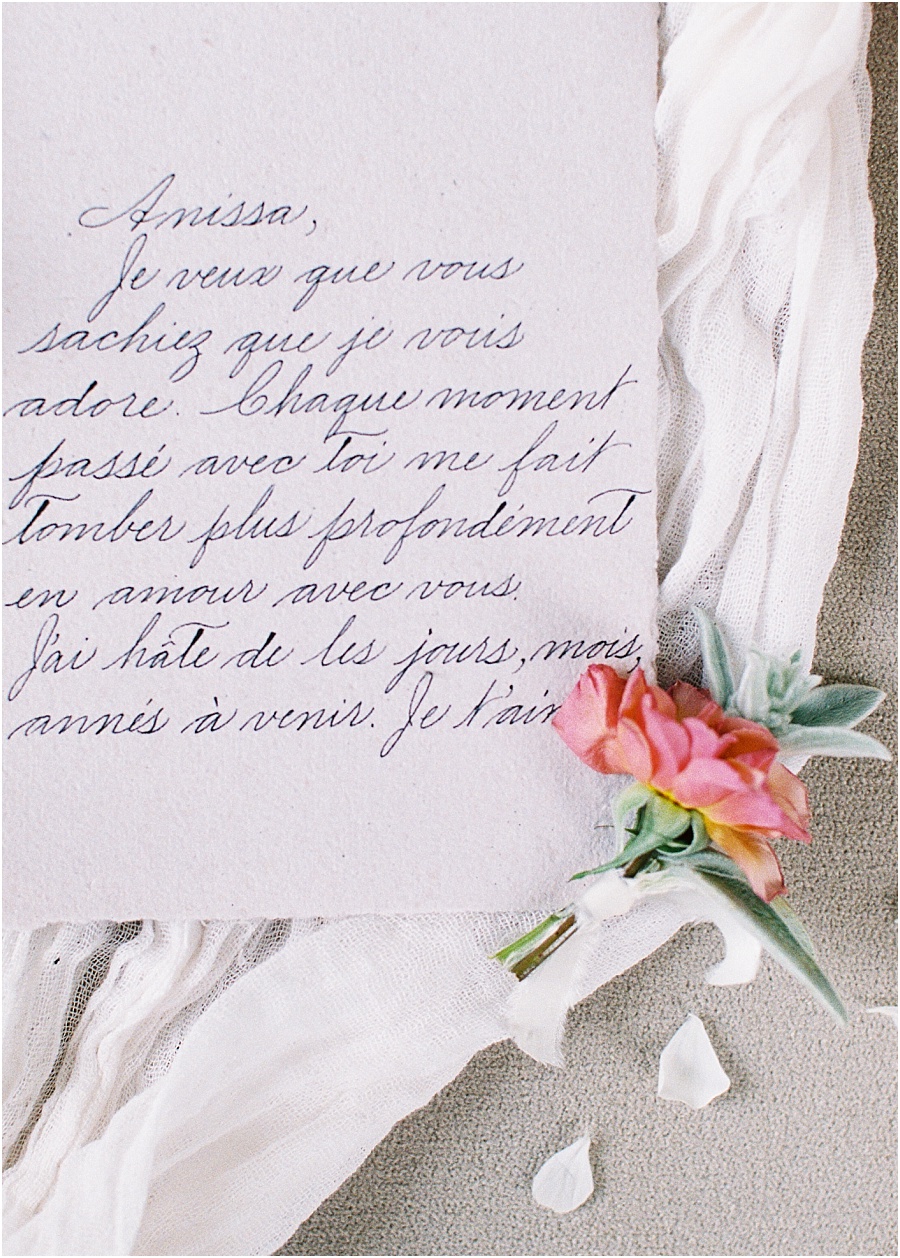 Anissa,
Je veux que vous
sachiez que je vous
adore. Chaque moment
passé avec toi me fait
tomber plus profondément
en amour avec vous.
J'ai hâte de les jours, mois,
annés à venir. Je t'aim